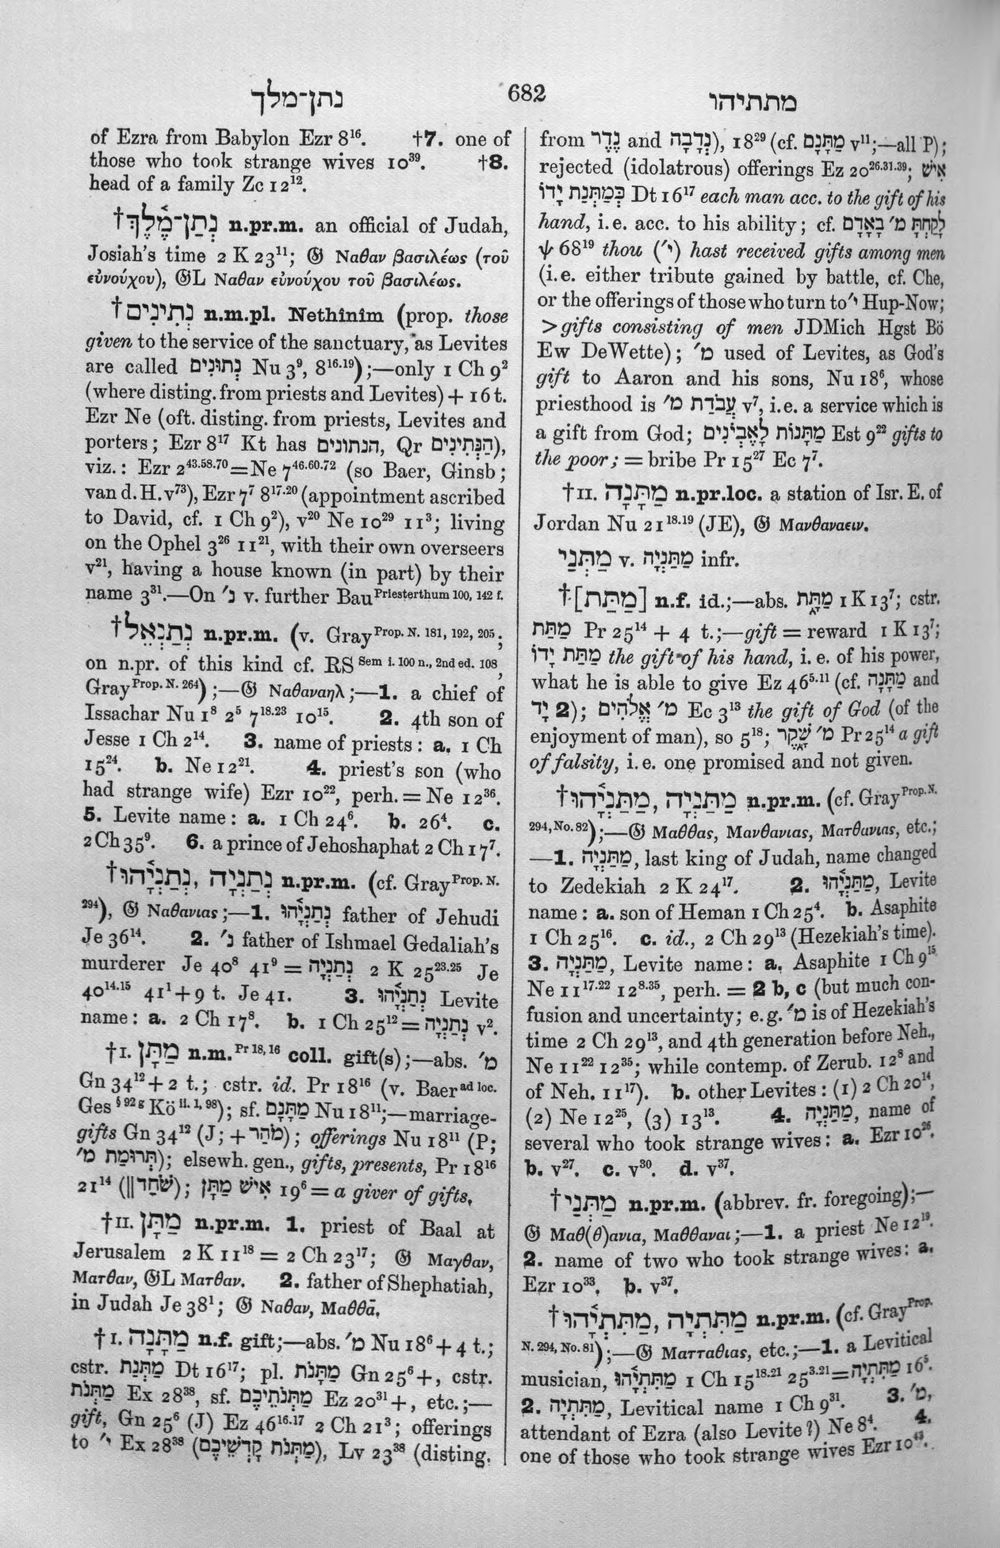 נתן־מלך
682
מתתיהו
of Ezra from Babylon Ezr 8¹⁶. †7. one of
those who took strange wives 10³⁹. †8.
head of a family Zc 12¹².
†נְתַן־מֶ֫לֶךְ n.pr.m. an official of Judah,
Josiah's time 2 K 23¹¹; 𝔊 Ναθαν βασιλέως (τοῦ
εὐνούχου), 𝔊L Ναθαν εὐνούχου τοῦ βασιλέως.
†נְתִינִים n.m.pl. Nethînîm (prop. those
given to the service of the sanctuary, as Levites
are called נְתוּנִים Nu 3⁹, 8¹⁶·¹⁹);—only 1 Ch 9²
(where disting. from priests and Levites) + 16 t.
Ezr Ne (oft. disting. from priests, Levites and
porters; Ezr 8¹⁷ Kt has הנתונים, Qr הַנְּתִינִים),
viz.: Ezr 2⁴³·⁵⁸·⁷⁰=Ne 7⁴⁶·⁶⁰·⁷² (so Baer, Ginsb;
van d. H. v⁷³), Ezr 7⁷ 8¹⁷·²⁰ (appointment ascribed
to David, cf. 1 Ch 9²), v²⁰ Ne 10²⁹ 11³; living
on the Ophel 3²⁶ 11²¹, with their own overseers
v²¹, having a house known (in part) by their
name 3³¹.—On נ׳ v. further Bau Priesterthum 100, 142 f.
†נְתַנְאֵל n.pr.m. (v. Gray Prop. N. 181, 192, 205;
on n.pr. of this kind cf. RS Sem i. 100 n., 2nd ed. 108,
Gray Prop. N. 264);—𝔊 Ναθαναηλ;—1. a chief of
Issachar Nu 1⁸ 2⁵ 7¹⁸·²³ 10¹⁵. 2. 4th son of
Jesse 1 Ch 2¹⁴. 3. name of priests: a. 1 Ch
15²⁴. b. Ne 12²¹. 4. priest's son (who
had strange wife) Ezr 10²², perh. = Ne 12³⁶.
5. Levite name: a. 1 Ch 24⁶. b. 26⁴. c.
2 Ch 35⁹. 6. a prince of Jehoshaphat 2 Ch 17⁷.
†נְתַנְיָה, נְתַנְיָ֫הוּ n.pr.m. (cf. Gray Prop. N.
294), 𝔊 Ναθανιας;—1. נְתַנְיָ֫הוּ father of Jehudi
Je 36¹⁴. 2. נ׳ father of Ishmael Gedaliah's
murderer Je 40⁸ 41⁹ = נְתַנְיָה 2 K 25²³·²⁵ Je
40¹⁴·¹⁵ 41¹+9 t. Je 41. 3. נְתַנְיָ֫הוּ Levite
name: a. 2 Ch 17⁸. b. 1 Ch 25¹²=נְתַנְיָה v².
†I. מַתָּן n.m. Pr 18, 16 coll. gift(s);—abs. מ׳
Gn 34¹²+2 t.; cstr. id. Pr 18¹⁶ (v. Baer ad loc.
Ges § 92 g Kö ii. 1, 98); sf. מַתָּנָם Nu 18¹¹;—marriage-
gifts Gn 34¹² (J; + מֹהַר); offerings Nu 18¹¹ (P;
תְּרוּמַת מ׳); elsewh. gen., gifts, presents, Pr 18¹⁶
21¹⁴ (‖שֹׁחַד); אִישׁ מַתָּן 19⁶=a giver of gifts.
†II. מַתָּן n.pr.m. 1. priest of Baal at
Jerusalem 2 K 11¹⁸ = 2 Ch 23¹⁷; 𝔊 Μαγθαν,
Ματθαν, 𝔊L Ματθαν. 2. father of Shephatiah,
in Judah Je 38¹; 𝔊 Ναθαν, Μαθθᾶ.
†I. מַתָּנָה n.f. gift;—abs. מ׳ Nu 18⁶+4 t.;
cstr. מַתְּנַת Dt 16¹⁷; pl. מַתָּנֹת Gn 25⁶+, cstr.
מַתְּנֹת Ex 28³⁸, sf. מַתְּנֹתֵיכֶם Ez 20³¹+, etc.;—
gift, Gn 25⁶ (J) Ez 46¹⁶·¹⁷ 2 Ch 21³; offerings
to י׳ Ex 28³⁸ (מַתְּנֹת קָדְשֵׁיכֶם), Lv 23³⁸ (disting.
from נֶדֶר and נְדָבָה), 18²⁹ (cf. מַתָּנָם v¹¹;—all P);
rejected (idolatrous) offerings Ez 20²⁶·³¹·³⁹; אִישׁ
כְּמַתְּנַת יָדוֹ Dt 16¹⁷ each man acc. to the gift of his
hand, i.e. acc. to his ability; cf. לָקַחְתָּ מ׳ בָּאָדָם
ψ 68¹⁹ thou (י׳) hast received gifts among men
(i.e. either tribute gained by battle, cf. Che,
or the offerings of those who turn to י׳ Hup-Now;
>gifts consisting of men JDMich Hgst Bö
Ew DeWette); מ׳ used of Levites, as God's
gift to Aaron and his sons, Nu 18⁶, whose
priesthood is עֲבֹדַת מ׳ v⁷, i.e. a service which is
a gift from God; מַתָּנוֹת לָאֶבְיוֹנִים Est 9²² gifts to
the poor; = bribe Pr 15²⁷ Ec 7⁷.
†II. מַתָּנָה n.pr.loc. a station of Isr. E. of
Jordan Nu 21¹⁸·¹⁹ (JE), 𝔊 Μανθαναειν.
מַתְּנַי v. מַתַּנְיָה infr.
†[מַתַּת] n.f. id.;—abs. מַתָּת 1 K 13⁷; cstr.
מַתַּת Pr 25¹⁴ + 4 t.;—gift = reward 1 K 13⁷;
מַתַּת יָדוֹ the gift of his hand, i. e. of his power,
what he is able to give Ez 46⁵·¹¹ (cf. מַתָּנָה and
יָד 2); מ׳ אֱלֹהִים Ec 3¹³ the gift of God (of the
enjoyment of man), so 5¹⁸; מ׳ שֶׁקֶר Pr 25¹⁴ a gift
of falsity, i. e. one promised and not given.
†מַתַּנְיָה, מַתַּנְיָ֫הוּ n.pr.m. (cf. Gray Prop. N.
294, No. 82);—𝔊 Μαθθας, Μανθανιας, Ματθανιας, etc.;
—1. מַתַּנְיָה, last king of Judah, name changed
to Zedekiah 2 K 24¹⁷. 2. מַתַּנְיָ֫הוּ, Levite
name: a. son of Heman 1 Ch 25⁴. b. Asaphite
1 Ch 25¹⁶. c. id., 2 Ch 29¹³ (Hezekiah's time).
3. מַתַּנְיָה, Levite name: a. Asaphite 1 Ch 9¹⁵
Ne 11¹⁷·²² 12⁸·³⁵, perh. = 2 b, c (but much con-
fusion and uncertainty; e.g. מ׳ is of Hezekiah's
time 2 Ch 29¹³, and 4th generation before Neh.,
Ne 11²² 12³⁵; while contemp. of Zerub. 12⁸ and
of Neh. 11¹⁷). b. other Levites: (1) 2 Ch 20¹⁴,
(2) Ne 12²⁵, (3) 13¹³. 4. מַתַּנְיָה, name of
several who took strange wives: a. Ezr 10²⁶.
b. v²⁷. c. v³⁰. d. v³⁷.
†מַתְּנַי n.pr.m. (abbrev. fr. foregoing);—
𝔊 Μαθ(θ)ανια, Μαθθαναι;—1. a priest Ne 12¹⁹.
2. name of two who took strange wives: a.
Ezr 10³³. b. v³⁷.
†מַתִּתְיָה, מַתִּתְיָ֫הוּ n.pr.m. (cf. Gray Prop.
N. 294, No. 81);—𝔊 Ματταθιας, etc.;—1. a Levitical
musician, מַתִּתְיָ֫הוּ 1 Ch 15¹⁸·²¹ 25³·²¹=מַתִּתְיָה 16⁵.
2. מַתִּתְיָה, Levitical name 1 Ch 9³¹. 3. מ׳,
attendant of Ezra (also Levite?) Ne 8⁴. 4.
one of those who took strange wives Ezr 10⁴³.